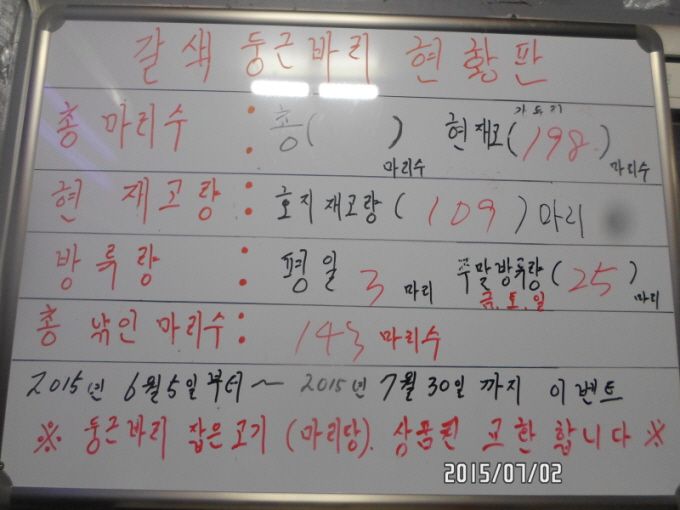 갈색 둥근바리 현황판
총 마리수 : 총( )마리수 현재고(198)마리수
가두리
현 재고량 : 호지재고량 (109) 마리
방류량 : 평일 3 마리 주말방류량(25)마리
금.토.일
총 낚인 마리수 : 143 마리수
2015년 6월5일부터 ~ 2015년 7월 30일 까지 이벤트
※ 둥근바리 잡은고기 (마리당). 상품권 교환 합니다 ※
2015/07/02